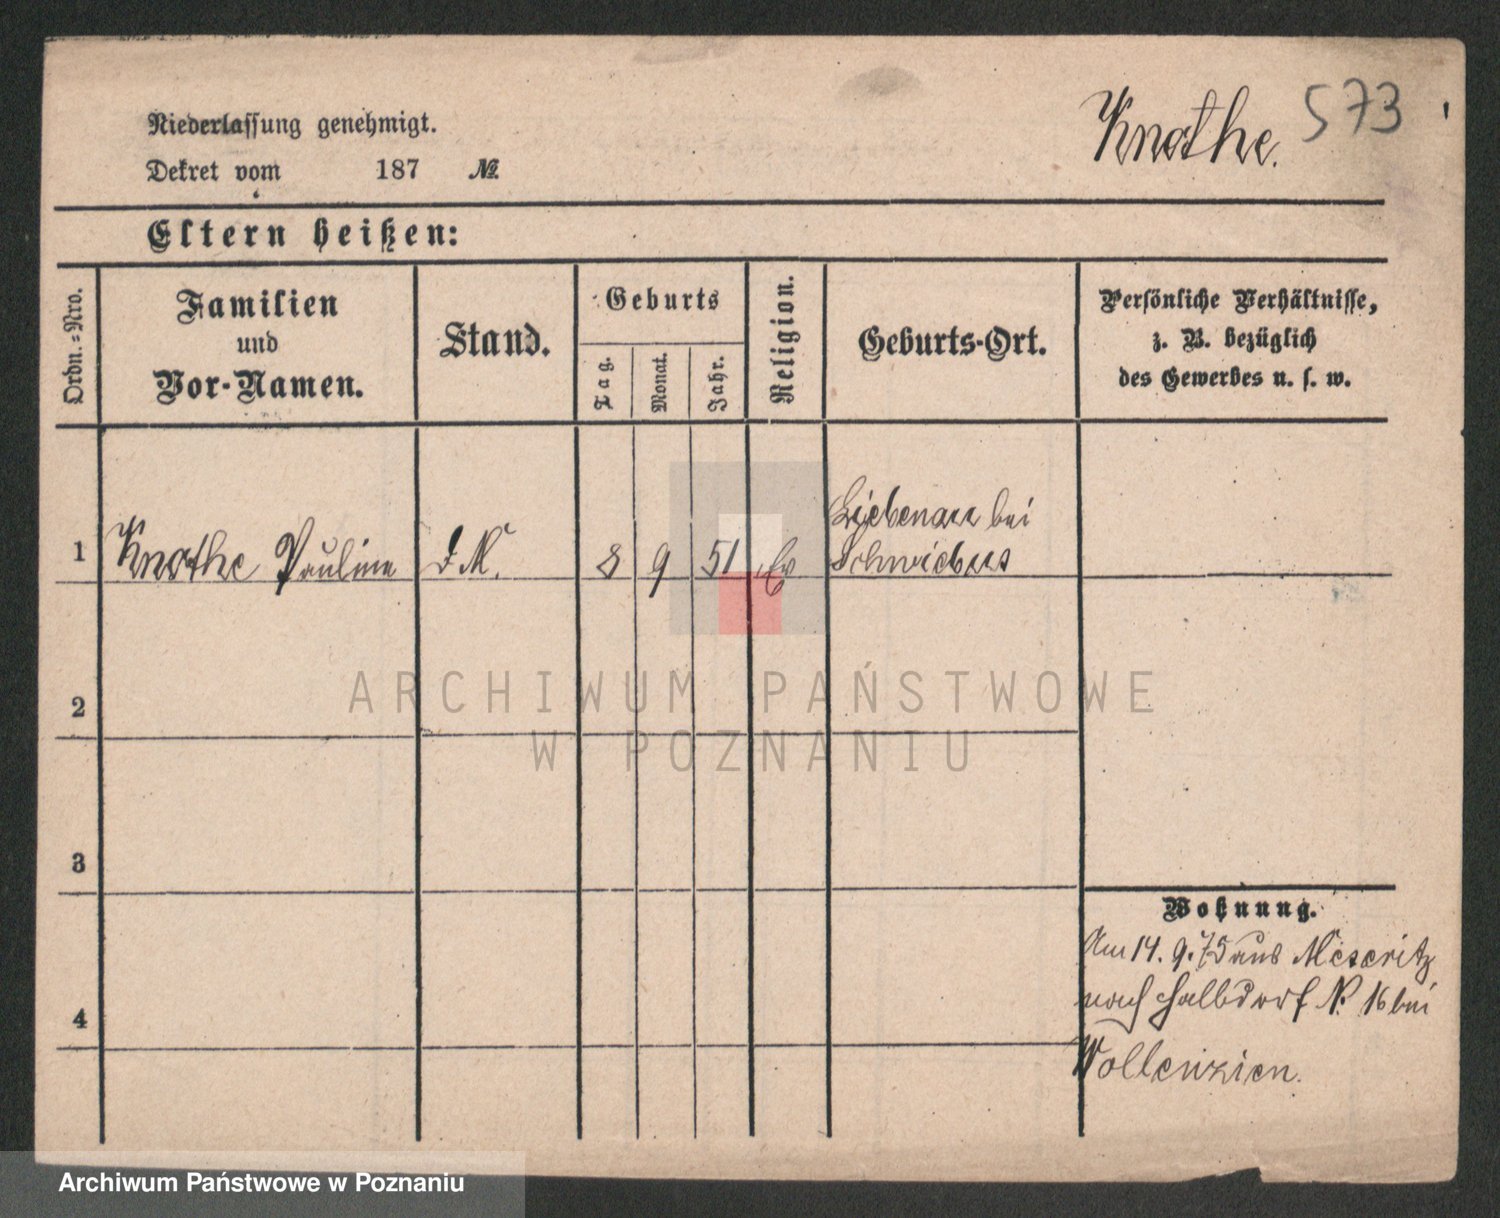 Knothe. 573
Niederlassung genehmigt.
Dekret vom 187 №
Eltern heißen:
Ordn.-Nro.
Familien
und
Vor-Namen.
Stand.
Geburts
Tag.
Monat.
Jahr.
Religion.
Geburts-Ort.
Persönliche Verhältnisse,
z. B. bezüglich
des Gewerbes u. s. w.
Liebenau bei
1 Knothe Pauline d M. 8 9 51 Ev Schwiebus
2
3
4
Wohnung.
Am 14. 9. 75 aus Meseritz
nach Halbdorf N. 16 bei
Wollenzien.
ARCHIWUM PAŃSTWOWE
W POZNANIU
Archiwum Państwowe w Poznaniu